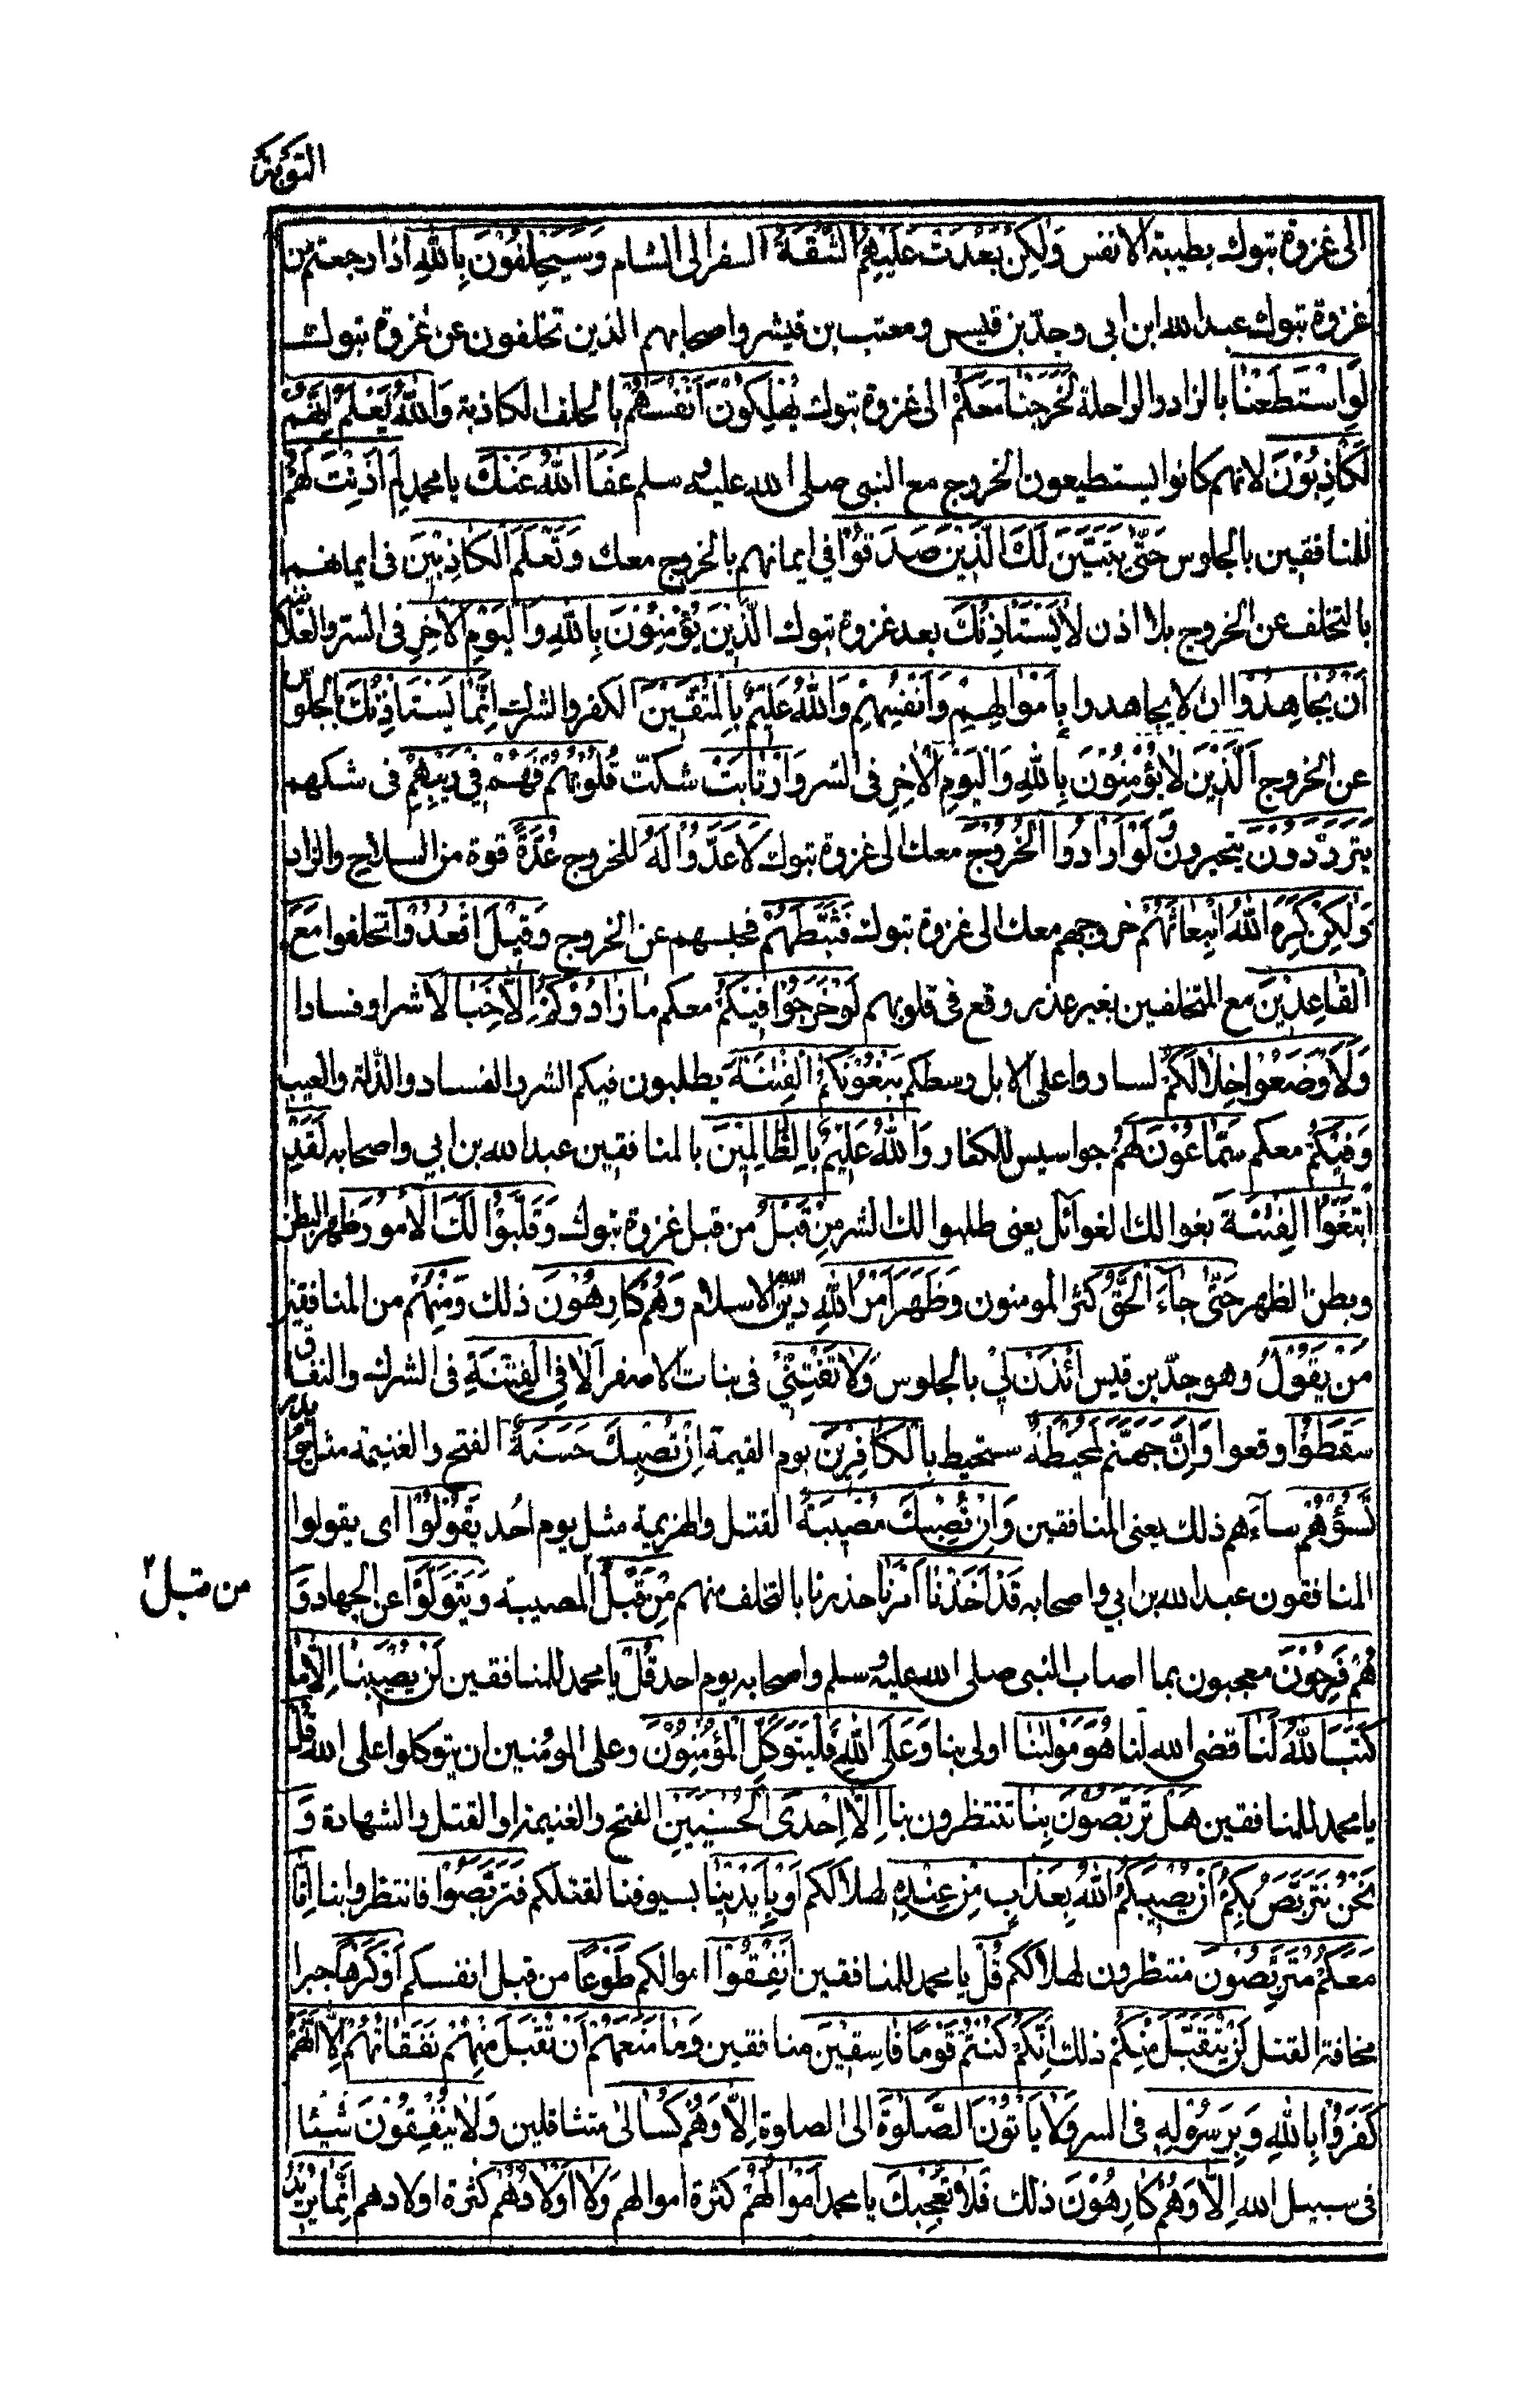 التوبة
الى غزوة تبوك بطيبة الانفس وَلٰكِنْ بَعُدَتْ عَلَيْهِمُ الشُّقَّةُ السفر الى الشام وَسَيَحْلِفُوْنَ بِاللّٰهِ اذا رجعتم من
غزوة تبوك عبد الله ابن ابى وجد بن قيس ومعتب بن قيشر واصحابهم الذين تخلفون عن غزوة تبوك
لَوِاسْتَطَعْنَا بالزاد والراحلة لَخَرَجْنَا مَعَكُمْ الى غزوة تبوك يُهْلِكُوْنَ اَنْفُسَهُمْ بالحلف الكاذبة وَاللّٰهُ يَعْلَمُ اِنَّهُمْ
لَكَاذِبُوْنَ لانهم كانوا يستطيعون الخروج مع النبى صلى الله عليه وسلم عَفَا اللّٰهُ عَنْكَ يا محمد لِمَ اَذِنْتَ لَهُمْ
للمنافقين بالجلوس حَتّٰى يَتَبَيَّنَ لَكَ الَّذِيْنَ صَدَقُوْا فى ايمانهم بالخروج معك وَتَعْلَمَ الْكَاذِبِيْنَ فى ايمانهم
بالتخلف عن الخروج بلا اذن لَا يَسْتَاْذِنُكَ بعد غزوة تبوك الَّذِيْنَ يُؤْمِنُوْنَ بِاللّٰهِ وَالْيَوْمِ الْاٰخِرِ فى السر والعلانية
اَنْ يُّجَاهِدُوْا ان لا يجاهدوا بِاَمْوَالِهِمْ وَاَنْفُسِهِمْ وَاللّٰهُ عَلِيْمٌ بِالْمُتَّقِيْنَ الكفر والشرك اِنَّمَا يَسْتَاْذِنُكَ بالجلوس
عن الخروج الَّذِيْنَ لَا يُؤْمِنُوْنَ بِاللّٰهِ وَالْيَوْمِ الْاٰخِرِ فى السر وَارْتَابَتْ شكت قُلُوْبُهُمْ فَهُمْ فِى رَيْبِهِمْ فى شكهم
يَتَرَدَّدُوْنَ يتحيرون وَلَوْ اَرَادُوا الْخُرُوْجَ معك الى غزوة تبوك لَاَعَدُّوْا لَهٗ للخروج عُدَّةً قوة من السلاح والزاد
وَلٰكِنْ كَرِهَ اللّٰهُ انْبِعَاثَهُمْ خروجهم معك الى غزوة تبوك فَثَبَّطَهُمْ فحبسهم عن الخروج وَقِيْلَ اقْعُدُوْا تخلفوا مَعَ
الْقَاعِدِيْنَ مع المتخلفين بغير عذر وقع فى قلوبهم لَوْ خَرَجُوْا فِيْكُمْ معكم مَا زَادُوْكُمْ اِلَّا خَبَالًا شرا وفسادا
وَلَاَ وْضَعُوْا خِلَالَكُمْ لساروا على الابل وسطكم يَبْغُوْنَكُمُ الْفِتْنَةَ يطلبون فيكم الشر والفساد والذلة والعيب
وَفِيْكُمْ معكم سَمَّاعُوْنَ لَهُمْ جواسيس للكفار وَاللّٰهُ عَلِيْمٌ بِالظَّالِمِيْنَ بالمنافقين عبد الله بن ابي واصحابه لَقَدِ
ابْتَغَوُا الْفِتْنَةَ بغوا لك الغوائل يعنى طلبوا لك الشر مِنْ قَبْلُ من قبل غزوة تبوك وَقَلَّبُوْا لَكَ الْاُمُوْرَ ظهر البطن
وبطن الظهر حَتّٰى جَآءَ الْحَقُّ كثر المومنون وَظَهَرَ اَمْرُ اللّٰهِ دين الله الاسلام وَهُمْ كَارِهُوْنَ ذلك وَمِنْهُمْ من المنافقين
مَنْ يَّقُوْلُ وهو جد بن قيس ائْذَنْ لِّىْ بالجلوس وَلَا تَفْتِنِّىْ فى بنات الاصفر اَلَا فِى الْفِتْنَةِ فى الشرك والنفاق
سَقَطُوْا وقعوا وَاِنَّ جَهَنَّمَ لَمُحِيْطَةٌ ستحيط بِالْكَافِرِيْنَ يوم القيمة اِنْ تُصِبْكَ حَسَنَةٌ الفتح والغنيمة مثل يوم بدر
تَسُؤْهُمْ ساءهم ذلك يعنى المنافقين وَاِنْ تُصِبْكَ مُصِيْبَةٌ القتل والهزيمة مثل يوم احد يَقُوْلُوْا اى يقولوا
المنافقون عبد الله بن ابي واصحابه قَدْ اَخَذْنَا اَمْرَنَا حذرنا بالتخلف منهم مِنْ قَبْلُ المصيبة وَيَتَوَلَّوْا عن الجهاد وَّ
من قبل
هُمْ فَرِحُوْنَ معجبون بما اصاب النبى صلى الله عليه وسلم واصحابه يوم احد قُلْ يا محمد للمنافقين لَنْ يُّصِيْبَنَا اِلَّا مَا
كَتَبَ اللّٰهُ لَنَا قضى الله لنا هُوَ مَوْلٰىنَا اولى بنا وَعَلَى اللّٰهِ فَلْيَتَوَكَّلِ الْمُؤْمِنُوْنَ وعلى المومنين ان يتوكلوا على الله قُلْ
يا محمد للمنافقين هَلْ تَرَبَّصُوْنَ بِنَا تنتظرون بنا اِلَّا اِحْدَى الْحُسْنَيَيْنِ الفتح والغنيمة او القتل والشهادة وَ
نَحْنُ نَتَرَبَّصُ بِكُمْ اَنْ يُّصِيْبَكُمُ اللّٰهُ بِعَذَابٍ مِّنْ عِنْدِهٖ لهلاككم اَوْ بِاَيْدِيْنَا بسيوفنا لقتلكم فَتَرَبَّصُوْا فانتظروا بنا اِنَّا
مَعَكُمْ مُتَرَبِّصُوْنَ منتظرون لهلاككم قُلْ يا محمد للمنافقين اَنْفِقُوْا اموالكم طَوْعًا من قبل انفسكم اَوْ كَرْهًا جبرا
مخافة القتل لَنْ يُّتَقَبَّلَ مِنْكُمْ ذلك اِنَّكُمْ كُنْتُمْ قَوْمًا فَاسِقِيْنَ منافقين وَمَا مَنَعَهُمْ اَنْ تُقْبَلَ مِنْهُمْ نَفَقَاتُهُمْ اِلَّا اَنَّهُمْ
كَفَرُوْا بِاللّٰهِ وَبِرَسُوْلِهٖ فى السر وَلَا يَاْتُوْنَ الصَّلٰوةَ الى الصلوة اِلَّا وَهُمْ كُسَالٰى متثاقلين وَلَا يُنْفِقُوْنَ شيئا
فى سبيل الله اِلَّا وَهُمْ كَارِهُوْنَ ذلك فَلَا تُعْجِبْكَ يا محمد اَمْوَالُهُمْ كثرة اموالهم وَلَا اَوْلَادُهُمْ كثرة اولادهم اِنَّمَا يُرِيْدُ